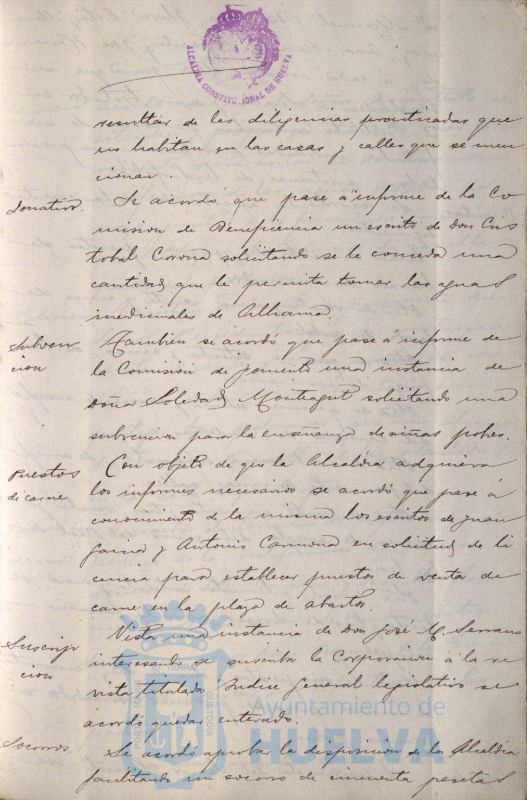 ALCALDIA CONSTITUCIONAL DE HUELVA
resultar de las diligencias practicadas que
no habitan en las casas y calles que se men
cionan.
Donativo. Se acordó que pase á informe de la Co
mision de Beneficencia un escrito de Don Cris
tobal Corona solicitando se le conceda una
cantidad que le permita tomar las aguas
medicinales de Alhama.
Subven Tambien se acordó que pase á informe de
cion la Comision de fomento una instancia de
Doña Soledad Montagut solicitando una
subvencion para la enseñanza de niñas pobres.
Puestos Con objeto de que la Alcaldia adquiera
de carne los informes necesarios se acordó que pase á
conocimiento de la misma los escritos de Juan
Garcia y Antonio Carmona en solicitud de li
cencia para establecer puestos de venta de
carne en la plaza de abastos.
Suscrip Vista una instancia de Don José M. Serrano
cion interesando se suscriba la Corporacion á la re
vista titulada Indice general legislativo se
acordó quedar enterado.
Socorros. Se acordó aprobar la disposicion de la Alcaldia
facilitando un socorro de cincuenta pesetas
Ayuntamiento de
HUELVA